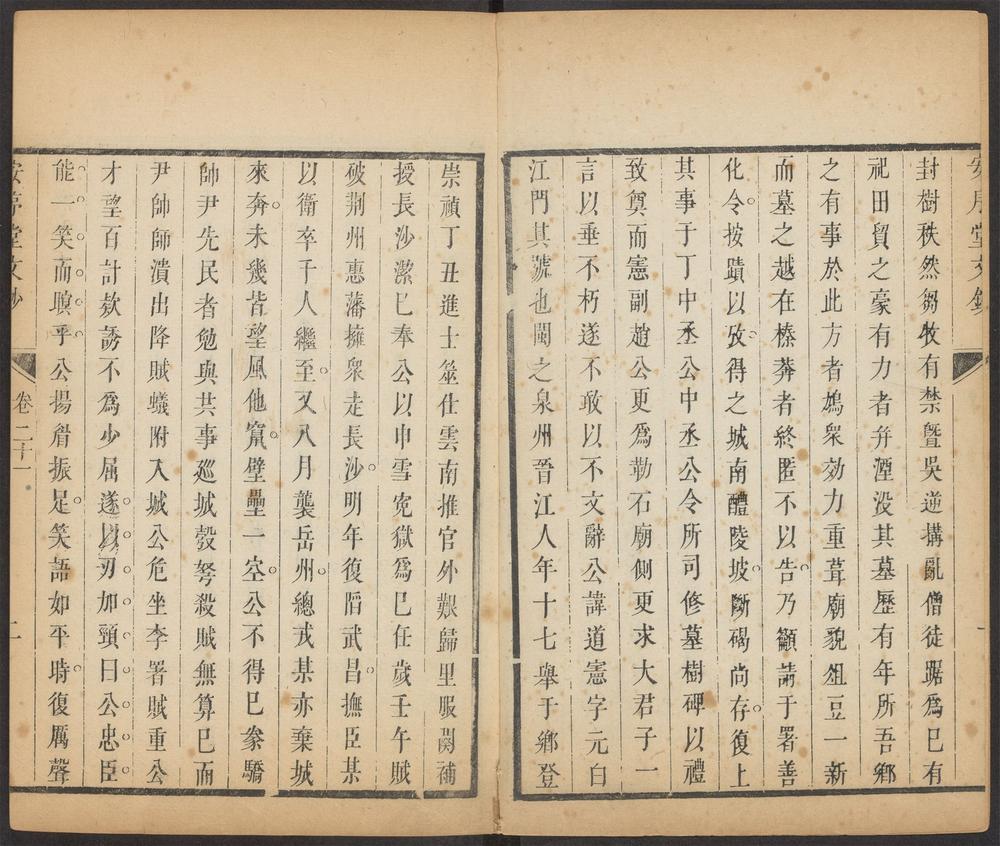 封樹秩然芻牧有禁暨吳逆搆亂僧徒踞爲已有
祀田貿之豪有力者弁湮没其墓歷有年所吾鄉
之有事於此方者鳩衆効力重葺廟貌俎豆一新
而墓之越在榛莽者終匿不以告乃籲請于署善
化令按蹟以攷得之城南醴陵坡斷碣尚存復上
其事于丁中丞公中丞公令所司修墓樹碑以禮
致奠而憲副趙公更爲勒石廟側更求大君子一
言以垂不朽遂不敢以不文辭公諱道憲字元白
江門其號也閩之泉州晉江人年十七舉于鄉登
崇禎丁丑進士筮仕雲南推官外艱歸里服闋補
授長沙潔巳奉公以申雪寃獄爲巳任歲壬午賊
破荆州惠藩擁衆走長沙明年復陷武昌撫臣某
以衛卒千人繼至又八月襲岳州總戎某亦棄城
來奔未幾皆望風他竄壁壘一空公不得巳叅驕
帥尹先民者勉與共事巡城彀弩殺賊無算巳而
尹帥師潰出降賊蟻附入城公危坐李署賊重公
才望百計欸誘不爲少屈遂以刃加頸曰公忠臣
能一笑而瞑乎公揚眉振足笑語如平時復厲聲
堂文鈔
卷二十一
二